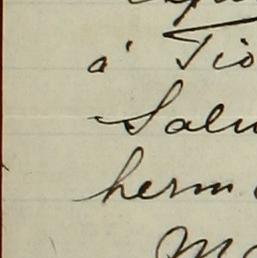 á Tio
Salu
herm
M